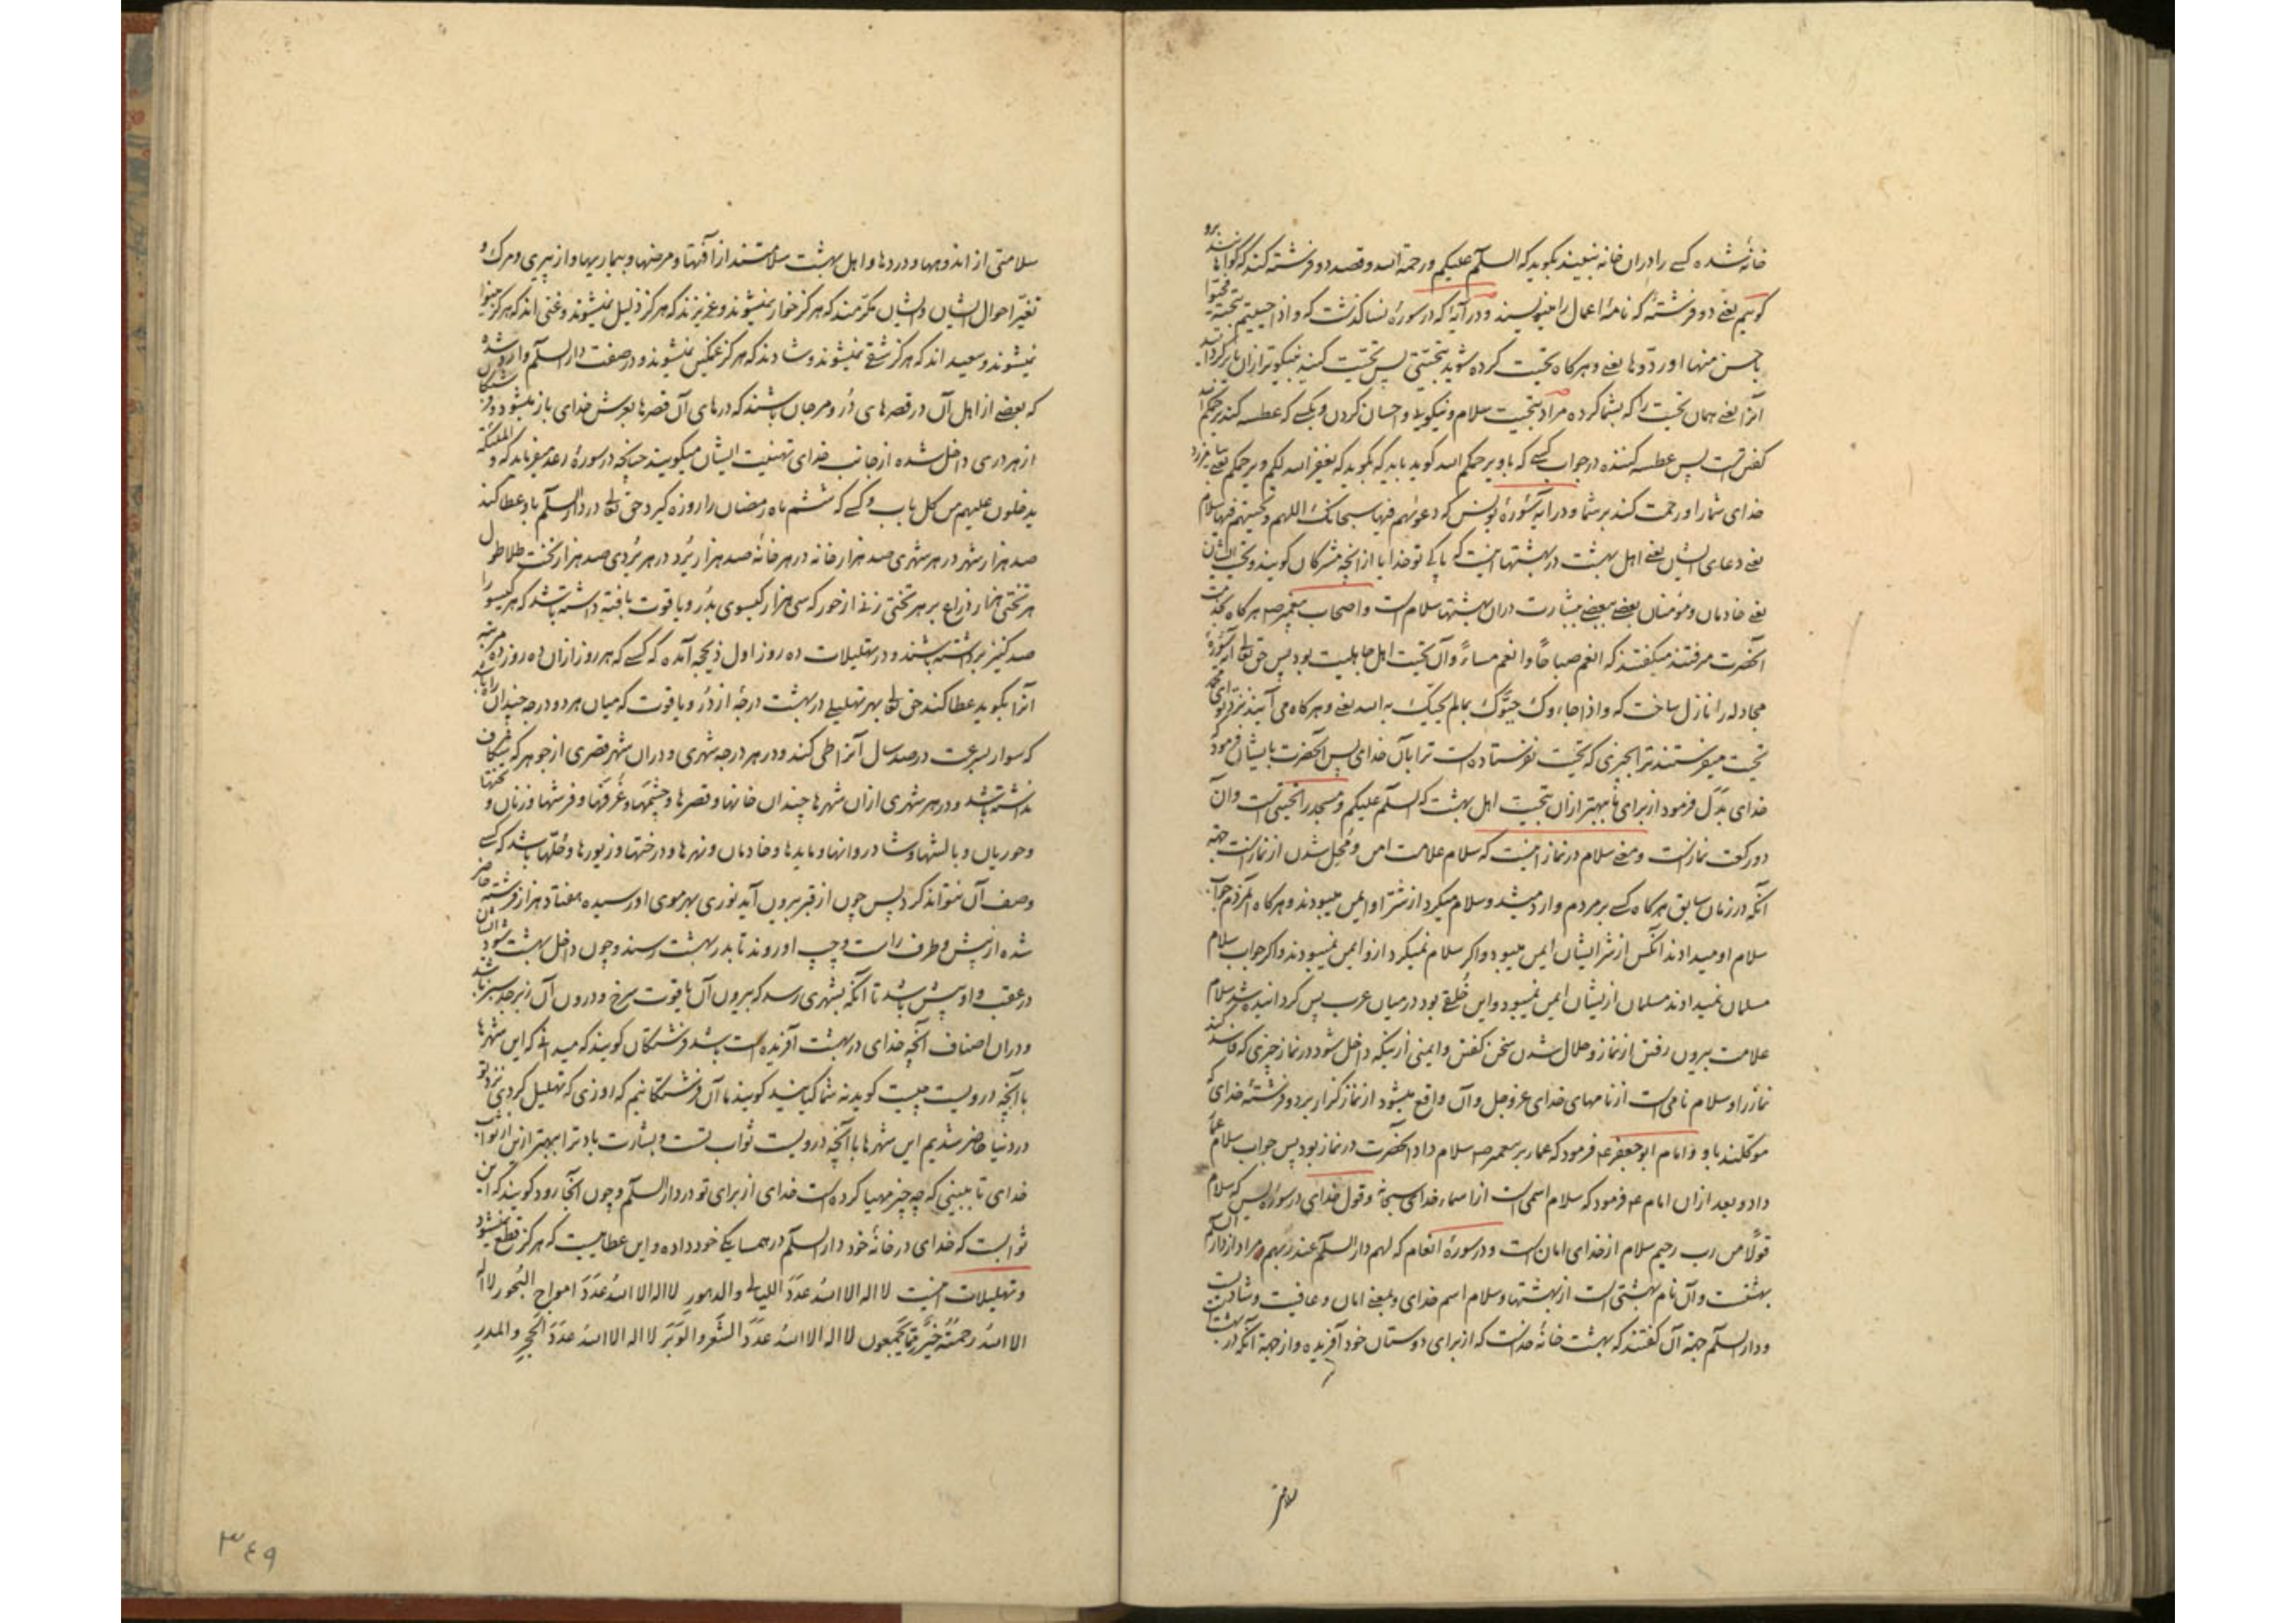 خانه شده کسی را در ان خانه نبیند بکوید که السلام علیکم و رحمة الله و قصد دو فرشته کند که کواهان
کوئیم یعنی دو فرشته که نامهٔ اعمال را مینویسند و در آیهٔ که در سورهٔ نسا کذشت که و اذا حییتم بتحیة فحیوا
باحسن منها او ردوها یعنی و هر کاه تحیت کرده شوید بتحیتی پس تحیت کنید بنیکوتر از ان یا بر کردانید
آنرا یعنی همان تحیت را که بشما کرده مراد بتحیت سلام و نیکویی و احسان کردن و بکسی که عطسه کند یرحمکم الله
کفتن است پس عطسه کننده در جواب کسی که باو یرحمکم الله کوید باید که بکوید که یغفر الله لکم و یرحمکم یعنی بیامرزد
خدای شما را و رحمت کند بر شما و در آیهٔ سورهٔ یونس که دعویهم فیها سبحانک اللهم و تحیتهم فیها سلام
یعنی دعای ایشان یعنی اهل بهشت در بهشتها اینست که پاکی تو خدایا از آنچه مشرکان کویند و تحیت ایشان
یعنی خادمان و مؤمنان بعضی ببعضی ببشارت در ان بهشتها سلام است و اصحاب پیغمبر ص هر کاه بخدمت
آنحضرت میرفتند میکفتند که انعم صباحا و انعم مساء و آن تحیت اهل جاهلیت بود پس حق تعالی آیهٔ سورهٔ
مجادله را نازل ساخت که و اذا جاءوک حیوک بما لم یحیک به الله یعنی و هر کاه می آیند نزد تو ای محمد
تحیت میفرستند ترا بچیزی که تحیت نفرستاده است ترا بآن خدای پس آنحضرت بایشان فرمود که
خدای بدل فرمود از برای ما بهتر از ان تحیت اهل بهشت که السلام علیکم و مسجد را تحیتی است و آن
دو رکعت نمازست و معنی سلام در نماز اینست که سلام علامت امن و محل شدن از نمازست جهة
آنکه در زمان سابق هر کاه کسی بر مردم وارد میشد و سلام میکرد از شر او ایمن میبودند و هر کاه آنمردم جواب
سلام او میدادند آنکس از شر ایشان ایمن میبود و اکر سلام نمیکرد ازو ایمن نمیبودند و اکر جواب سلام
مسلمان نمیدادند مسلمان از یشان ایمن نمیبود و این خلقی بود در میان عرب پس کردانیده شد سلام
علامت بیرون رفتن از نماز و حلال شدن سخن کفتن و ایمنی از ینکه داخل شود در نماز چیزی که فاسد کند
نماز را و سلام نامی است از نامهای خدای عز و جل و آن واقع میشود از نماز کزار بر دو فرشتهٔ خدای که
موکلند باو و امام ابو جعفر ع فرمود که عمار بر پیغمبر ص سلام داد آنحضرت در نماز بود پس جواب سلام عمار
داد و بعد از ان امام ع فرمود که سلام اسمی است از اسماء خدای سبحانه و قول خدای در سورهٔ یس که سلام
قولا من رب رحیم سلام از خدای امان است و در سورهٔ انعام که لهم دار السلام عند ربهم مراد از دار السلام
بهشت و آن نام بهشتی است از بهشتها و سلام اسم خدای و بمعنی امان و عافیت و شادیست
و دار السلام جهة آن کفتند که بهشت خانهٔ خداست که از برای دوستان خود آفریده و از جهة آنکه در بهشت
سلامتی
سلامتی از اندوهها و دردها و اهل بهشت سلامتند از آفتها و مرضها و بیماریها و از پیری و مرک و
تغیر احوال ایشان و ایشان مکرمند که هرکز خوار نمیشوند و عزیزند که هرکز ذلیل نمیشوند و غنی اند که هرکز بینوا
نمیشوند و سعید اند که هرکز شقی نمیشوند و شادند که هرکز غمکین نمیشوند و در صفت دار السلام وارد شده
که بعضی از اهل آن در قصرهای در و مرجان باشند که درهای آن قصرها بعرش خدای باز میشود و فرشتکان
از هر دری داخل شده از جانب خدای تهنیت ایشان میکویند چنانچه در سورهٔ رعد میفرماید که و الملئکة
یدخلون علیهم من کل باب و کسی که ششم ماه رمضان را روزه کیرد حق تعالی در دار السلام باو عطا کند
صد هزار شهر در هر شهری صد هزار خانه در هر خانه صد هزار برد در هر بردی صد هزار تخت طلا طول
هر تختی هزار ذراع بر هر تختی زنی از حور که سی هزار کیسوی بدر و یاقوت بافته داشته باشد که هر کیسو را
صد کنیز برداشته باشند و در تهلیلات ده روز اول ذیحجه آمده که کسی که هر روز از ان ده روز ده مرتبه
آنرا بکوید عطا کند حق تعالی بهر تهلیلی در بهشت درجهٔ از در و یاقوت که میان هر دو درجه چندان راه باشد
که سوار بسرعت در صد سال آنرا طی کند و در هر درجه شهری و در ان شهر قصری از جوهر که شکاف
نداشته باشد و در هر شهری از ان شهرها چندان خانها و قصرها و چشمها و غرفها و فرشها و زنان و تختها
و حوریان و بالشها و شادروانها و مایدها و خادمان و نهرها و درختها و زیورها و حلها باشد که کسی
وصف آن نتواند کرد پس چون از قبر بیرون آید نوری بهر موی او رسیده هفتاد هزار فرشته حاضر
شده از پیش و طرف راست و چپ او روند تا بدر بهشت رسند و چون داخل بهشت شود ایشان
در عقب و او پیش باشد تا آنکه بشهری رسد که بیرون آن یاقوت سرخ و درون آن زبرجد سبز باشد
و در ان اصناف آنچه خدای در بهشت آفریده است باشد فرشتکان کویند که میدانی که این شهرها
با آنچه درویست چیست کوید نه شما کیانید کویند ما آن فرشتکانیم که روزی که تهلیل کردی نزد تو
در دنیا حاضر شدیم این شهرها با آنچه درویست ثواب تست و بشارت باد ترا ببهتر از ین از ثواب
خدای تا ببینی که چه چیز مهیا کرده است خدای از برای تو در دار السلام و چون آنجا رود کویند که این
ثوابیست که خدای در خانهٔ خود دار السلام در همسایکی خود داده و این عطاییست که هرکز قطع نمیشود
و تهلیلات اینست لا اله الا الله عدد اللیالی و الدهور لا اله الا الله عدد امواج البحور لا اله
الا الله و رحمته خیر مما یجمعون لا اله الا الله عدد الشعر و الوبر لا اله الا الله عدد الحجر و المدر
۳۴۹